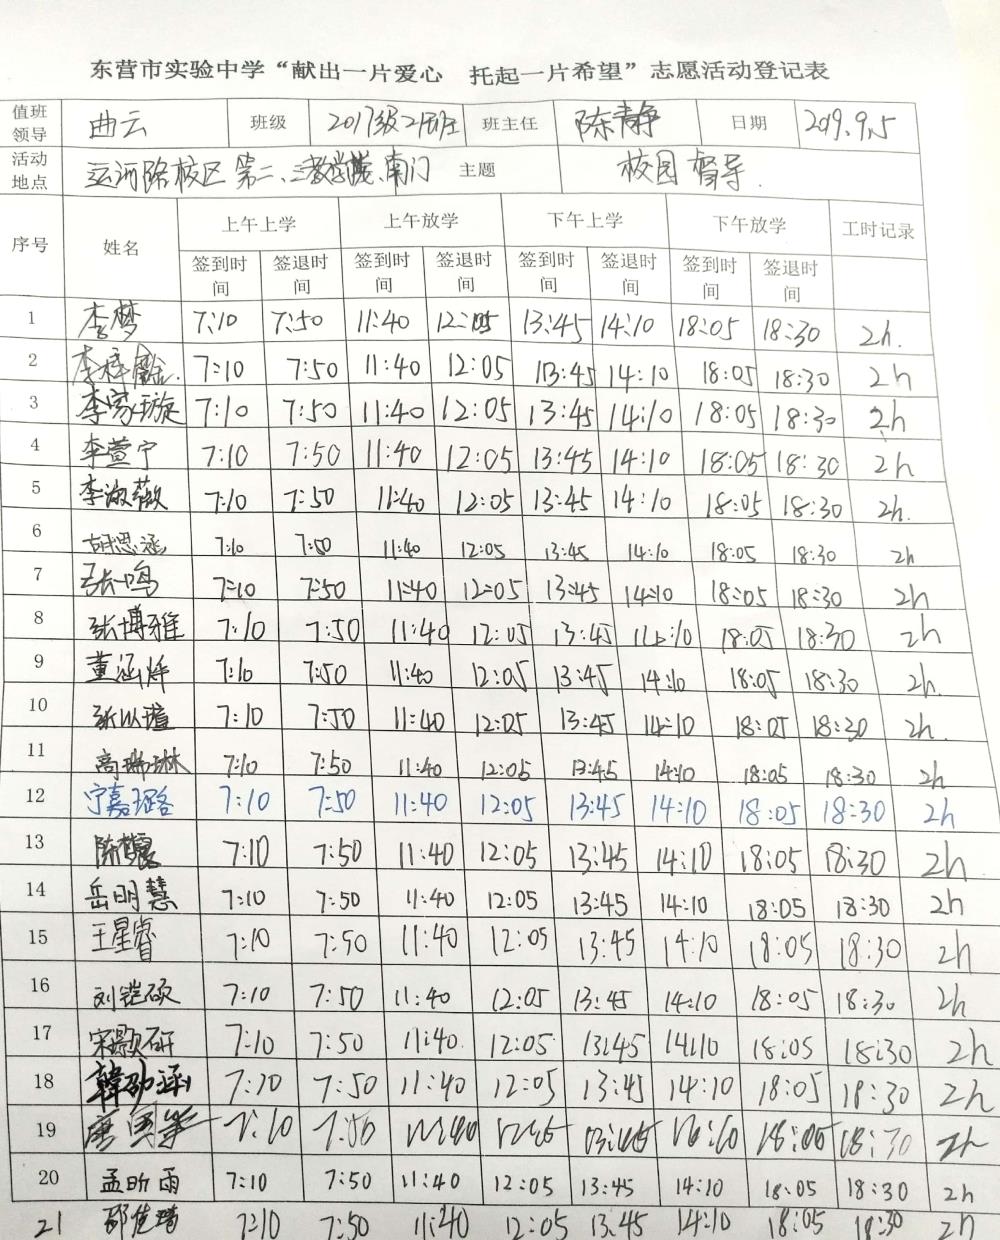 东营市实验中学“献出一片爱心 托起一片希望”志愿活动登记表
值班领导 曲云 班级 2017级21班 班主任 陈静 日期 2019.9.5
活动地点 运河路校区第二、三教学楼、南门 主题 校园督导
序号 姓名 上午上学 上午放学 下午上学 下午放学 工时记录
签到时间 签退时间 签到时间 签退时间 签到时间 签退时间 签到时间 签退时间
1 李梦 7:10 7:50 11:40 12:05 13:45 14:10 18:05 18:30 2h.
2 李梓 7:10 7:50 11:40 12:05 13:45 14:10 18:05 18:30 2h
3 李 璇 7:10 7:50 11:40 12:05 13:45 14:10 18:05 18:30 2h
4 李萱宁 7:10 7:50 11:40 12:05 13:45 14:10 18:05 18:30 2h
5 李淑薇 7:10 7:50 11:40 12:05 13:45 14:10 18:05 18:30 2h.
6 胡思涵 7:10 7:50 11:40 12:05 13:45 14:10 18:05 18:30 2h
7 张一鸣 7:10 7:50 11:40 12:05 13:45 14:10 18:05 18:30 2h
8 张博雅 7:10 7:50 11:40 12:05 13:45 14:10 18:05 18:30 2h
9 董涵烨 7:10 7:50 11:40 12:05 13:45 14:10 18:05 18:30 2h.
10 张以瑄 7:10 7:50 11:40 12:05 13:45 14:10 18:05 18:30 2h.
11 高瑞琳 7:10 7:50 11:40 12:05 13:45 14:10 18:05 18:30 2h
12 宁嘉璐 7:10 7:50 11:40 12:05 13:45 14:10 18:05 18:30 2h
13 陈 7:10 7:50 11:40 12:05 13:45 14:10 18:05 18:30 2h
14 岳明慧 7:10 7:50 11:40 12:05 13:45 14:10 18:05 18:30 2h
15 王星睿 7:10 7:50 11:40 12:05 13:45 14:10 18:05 18:30 2h
16 刘铠硕 7:10 7:50 11:40 12:05 13:45 14:10 18:05 18:30 2h
17 宋颢研 7:10 7:50 11:40 12:05 13:45 14:10 18:05 18:30 2h
18 韩劭涵 7:10 7:50 11:40 12:05 13:45 14:10 18:05 18:30 2h
19 唐 7:10 7:50 11:40 12:05 13:45 14:10 18:05 18:30 2h
20 孟昕雨 7:10 7:50 11:40 12:05 13:45 14:10 18:05 18:30 2h
21 邵 7:10 7:50 11:40 12:05 13:45 14:10 18:05 18:30 2h